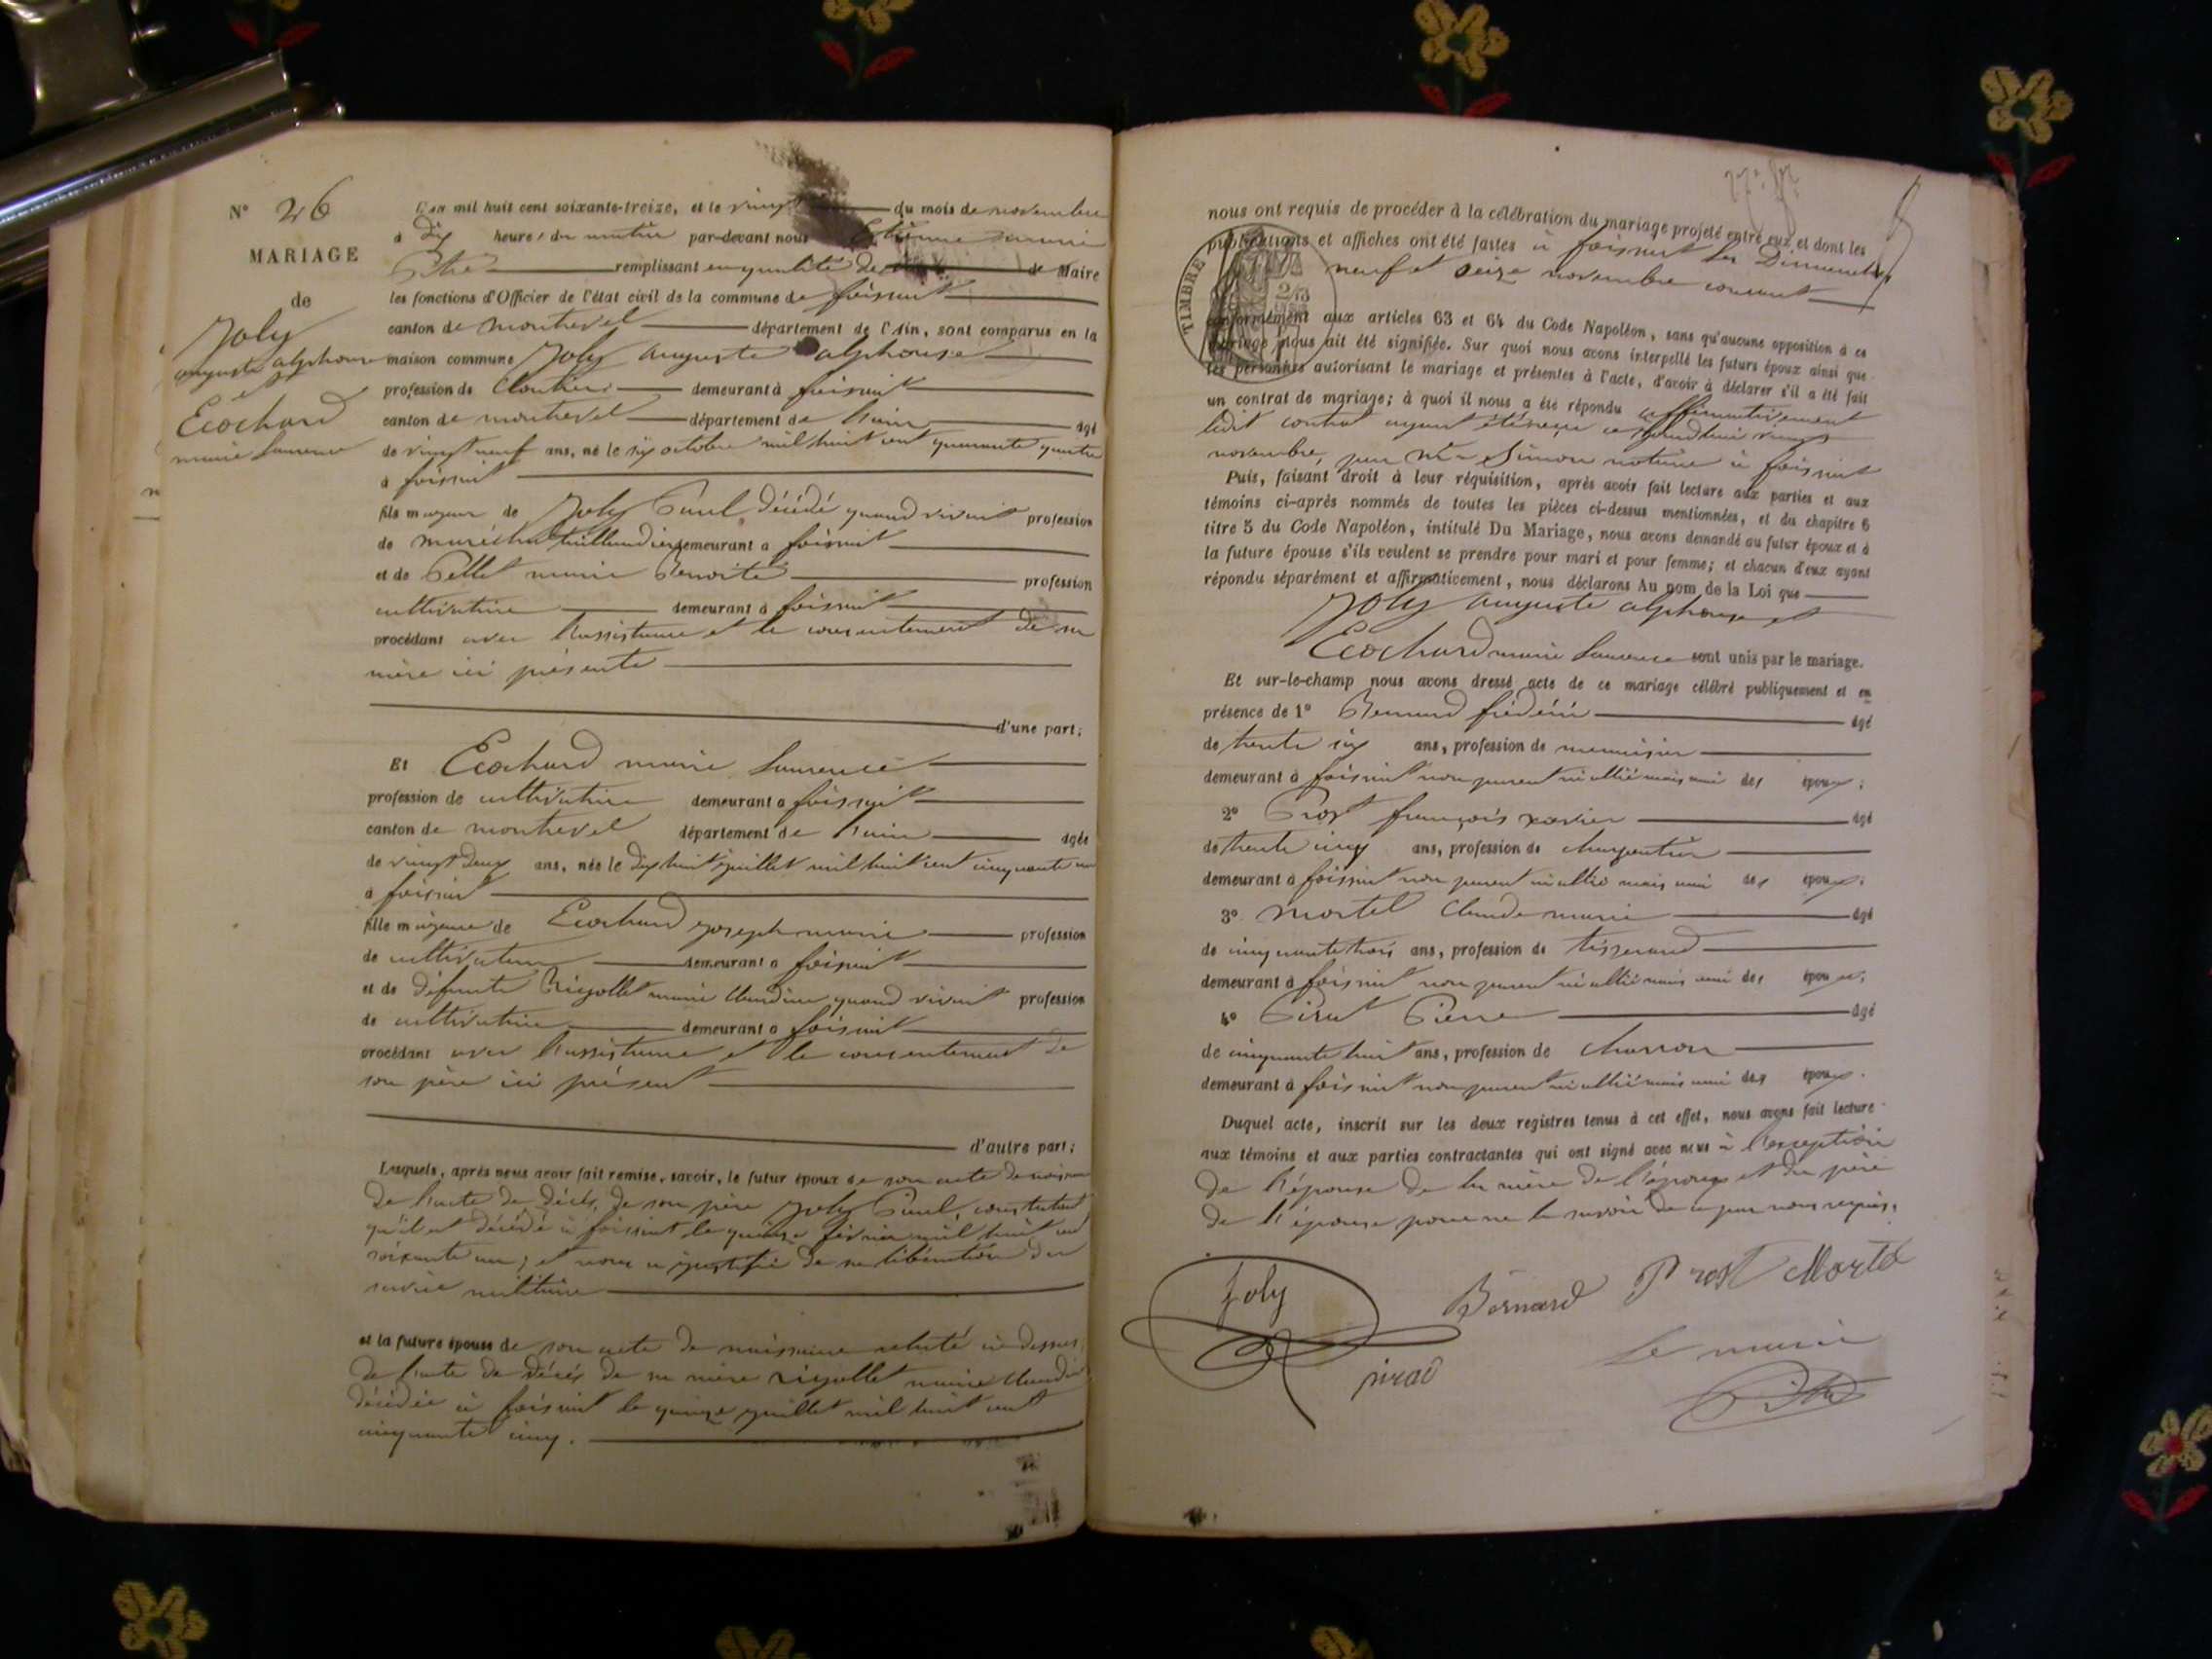 N° 26
MARIAGE
de
Joly
auguste alphonse
et
Ecochard
marie Laurence
L'an mil huit cent soixante-treize, et le vingt du mois de novembre
à dix heures du matin par-devant nous
remplissant en qualité de de Maire
les fonctions d'Officier de l'état civil de la commune de foissiat
canton de montrevel département de l'Ain, sont comparus en la
maison commune Joly auguste alphonse
profession de Cloutier demeurant à foissiat
canton de montrevel département de l'ain âgé
de vingt neuf ans, né le six octobre mil huit cent quarante quatre
à foissiat
fils majeur de Joly Paul décédé quand vivait profession
de maréchal taillandier demeurant à foissiat
et de Pellet marie Benoite profession
cultivatrice demeurant à foissiat
procédant avec l'assistance et le consentement de sa
mère ici présente
d'une part;
Et Ecochard marie Laurence
profession de cultivatrice demeurant à foissiat
canton de montrevel département de l'ain âgée
de vingt deux ans, née le dix huit juillet mil huit cent cinquante un
à foissiat
fille majeure de Ecochard joseph marie profession
de cultivateur demeurant à foissiat
et de défunte Rigollet marie Claudine quand vivait profession
de cultivatrice demeurant à foissiat
procédant avec l'assistance et le consentement de
son père ici présent
d'autre part;
Lesquels, après nous avoir fait remise, savoir, le futur époux de son acte de naissance
de l'acte de décès de son père Joly Paul, constatant
qu'il est décédé à foissiat le quinze février mil huit cent
soixante un; et nous a justifié de sa libération du
service militaire
et la future épouse de son acte de naissance relaté ci dessus,
de l'acte de décès de sa mère rigollet marie Claudine
décédée à foissiat le quinze juillet mil huit cent
cinquante cinq.
nous ont requis de procéder à la célébration du mariage projeté entre eux et dont les
publications et affiches ont été faites à foissiat les Dimanches
neuf et seize novembre courant
TIMBRE
conformément aux articles 63 et 64 du Code Napoléon, sans qu'aucune opposition à ce
mariage nous ait été signifiée. Sur quoi nous avons interpellé les futurs époux ainsi que
les personnes autorisant le mariage et présentes à l'acte, d'avoir à déclarer s'il a été fait
un contrat de mariage; à quoi il nous a été répondu affirmativement
ledit contrat ayant été reçu ce jourd'hui vingt
novembre par Me Simon notaire à foissiat
Puis, faisant droit à leur réquisition, après avoir fait lecture aux parties et aux
témoins ci-après nommés de toutes les pièces ci-dessus mentionnées, et du chapitre 6
titre 5 du Code Napoléon, intitulé Du Mariage, nous avons demandé au futur époux et à
la future épouse s'ils veulent se prendre pour mari et pour femme; et chacun d'eux ayant
répondu séparément et affirmativement, nous déclarons Au nom de la Loi que
Joly auguste alphonse et
Ecochard marie Laurence sont unis par le mariage.
Et sur-le-champ nous avons dressé acte de ce mariage célébré publiquement et en
présence de 1° Bernard frédéric âgé
de trente six ans, profession de menuisier
demeurant à foissiat non parent ni allié mais ami des époux;
2° Prost françois xavier âgé
de trente cinq ans, profession de charpentier
demeurant à foissiat non parent ni allié mais ami des époux;
3° mortel Claude marie âgé
de cinquante trois ans, profession de tisserand
demeurant à foissiat non parent ni allié mais ami des époux;
4° Pirat Pierre âgé
de cinquante huit ans, profession de charron
demeurant à foissiat non parent ni allié mais ami des époux.
Duquel acte, inscrit sur les deux registres tenus à cet effet, nous avons fait lecture
aux témoins et aux parties contractantes qui ont signé avec nous à l'exception
de l'épouse de la mère de l'époux et du père
de l'épouse pour ne le savoir de ce par nous requis.
Joly
Bernard Prost Mortel
pirat
Le maire